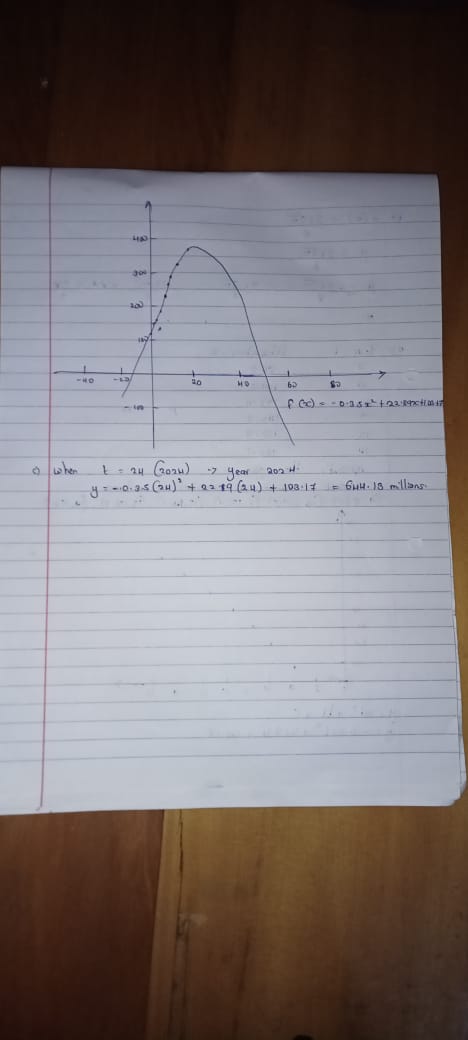 400
300
200
100
-40 -20 20 40 60 80
-100
f(x) = -0.35x² + 22.89x+103.17
c) when t = 24 (2024) → year 2024.
y = -0.35(24)² + 22.89(24) + 103.17 = 644.13 millons.